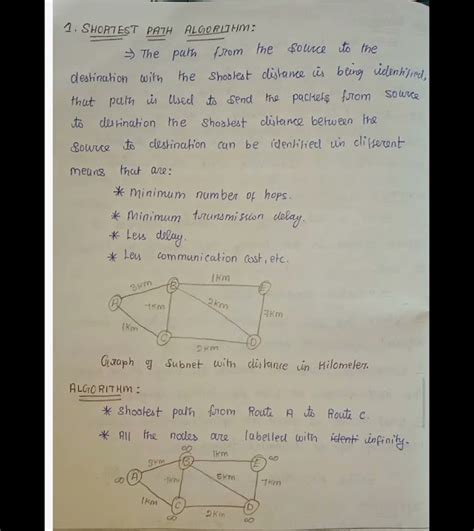 1. SHORTEST PATH ALGORITHM:
⇒ The path from the source to the
destination with the shortest distance is being identified,
that path is used to send the packets from source
to destination the shortest distance between the
source to destination can be identified in different
means that are:
* Minimum number of hops.
* Minimum transmission delay.
* Less delay.
* Less communication cost, etc.
3km B 1km E
A 7km 2km 7km
1km C 2km D
Graph of subnet with distance in kilometer.
ALGORITHM:
* Shortest path from Route A to Route C.
* All the nodes are labelled with identi infinity.
∞ ∞
3km B 1km E
A 1km 5km 7km
∞ 1km C 2km D
∞ ∞